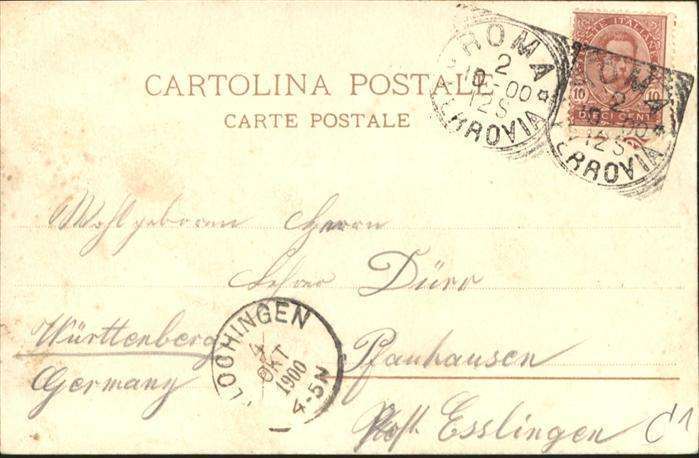 POSTE ITALIANE
10 10
DIECI CENT
ROMA
2
10-00
12S
FERROVIA
ROMA
2
10-00
12S
FERROVIA
CARTOLINA POSTALE
CARTE POSTALE
Wohlgeboren Herrn
Lehrer Dürr
Württemberg Pfauhausen
Germany Post. Esslingen
PLOCHINGEN
4
OKT
1900
4-5N